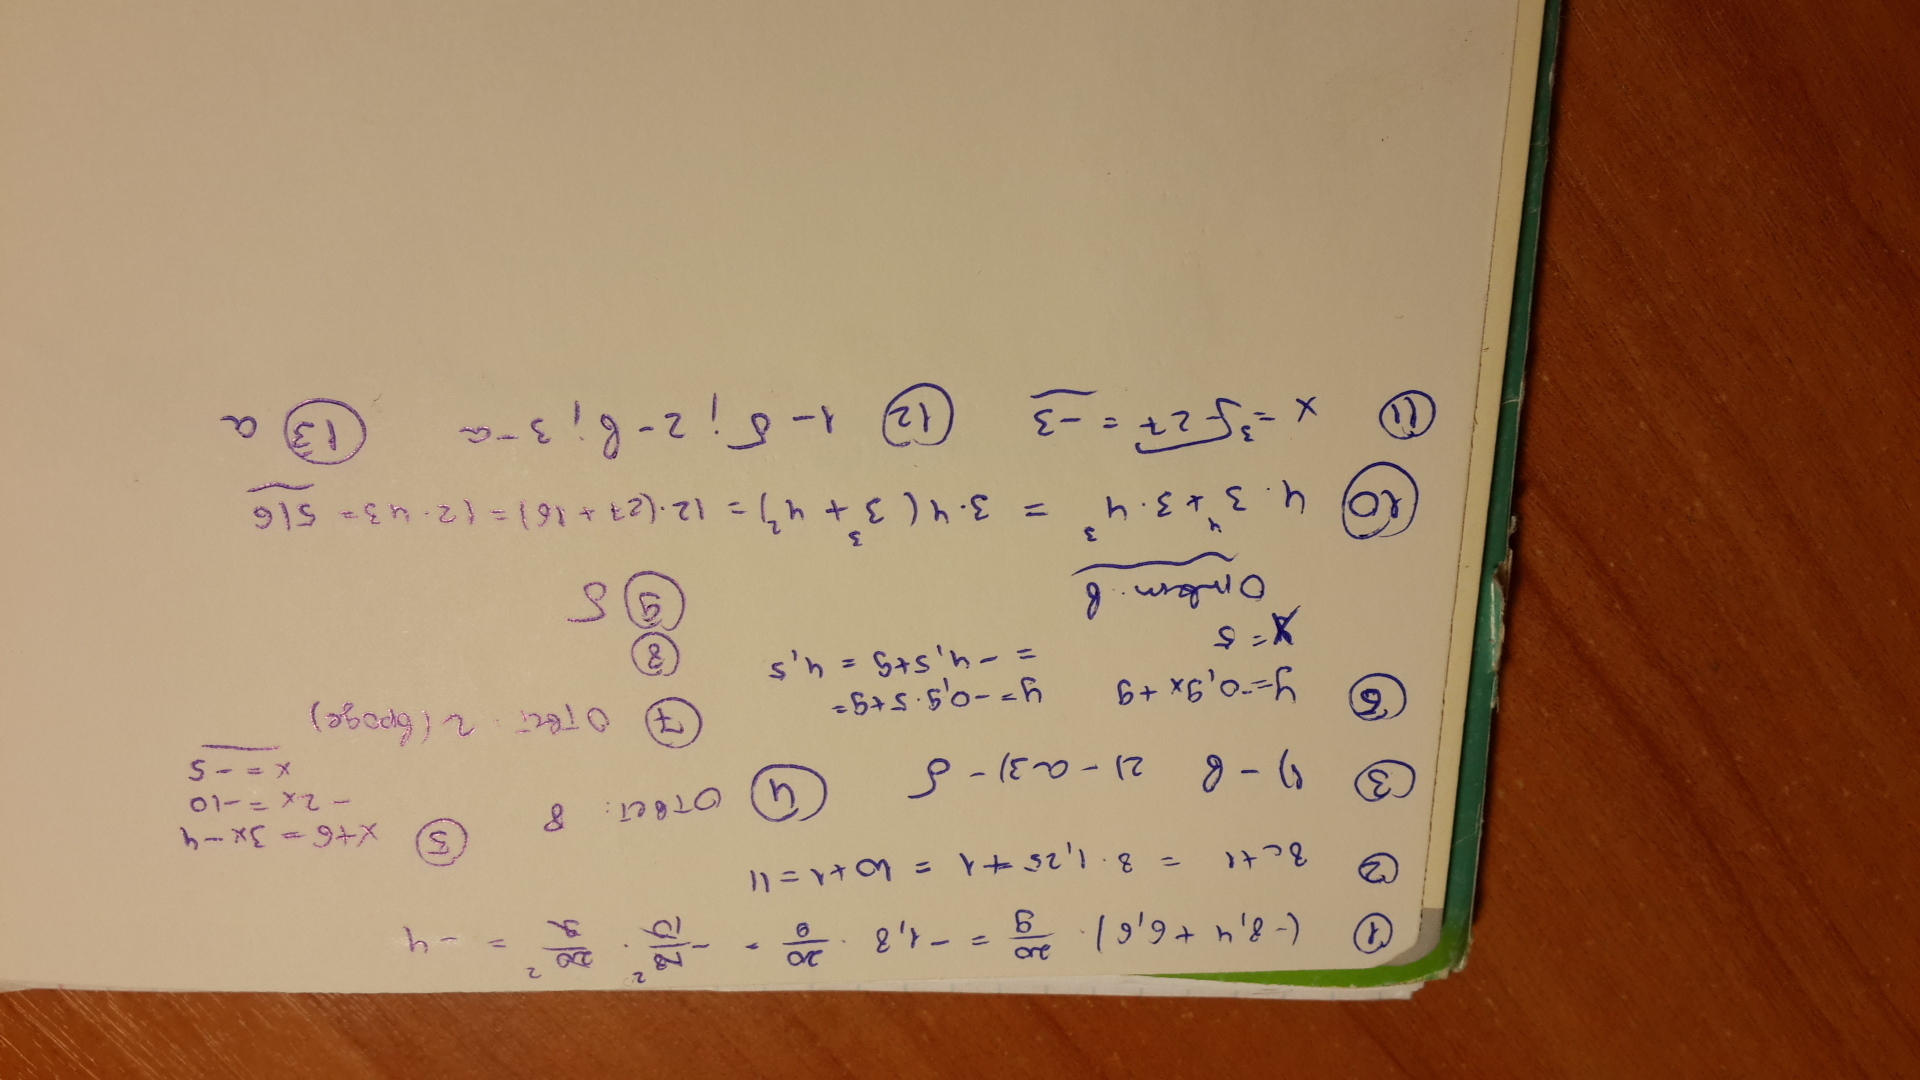 ① (-8,4+6,6)·20/9 = -1,8·20/9 = -18²/10·20²/9 = -4
② 8c+1 = 8·1,25+1 = 10+1=11
③ 1)-в 2)-а 3)-б ④ Ответ: 8 ⑤ x+6 = 3x-4
-2x = -10
x = -5
⑥ y=-0,9x+9 y=-0,9·5+9=
= -4,5+9 = 4,5
x=5
Ответ: в
⑦ Ответ: 2 (вроде)
⑧
⑨ б
⑩ 4·3⁴+3·4³ = 3·4(3³+4²) = 12·(27+16) = 12·43 = 516
⑪ x = ³√27 = -3 ⑫ 1-б; 2-в; 3-а ⑬ а